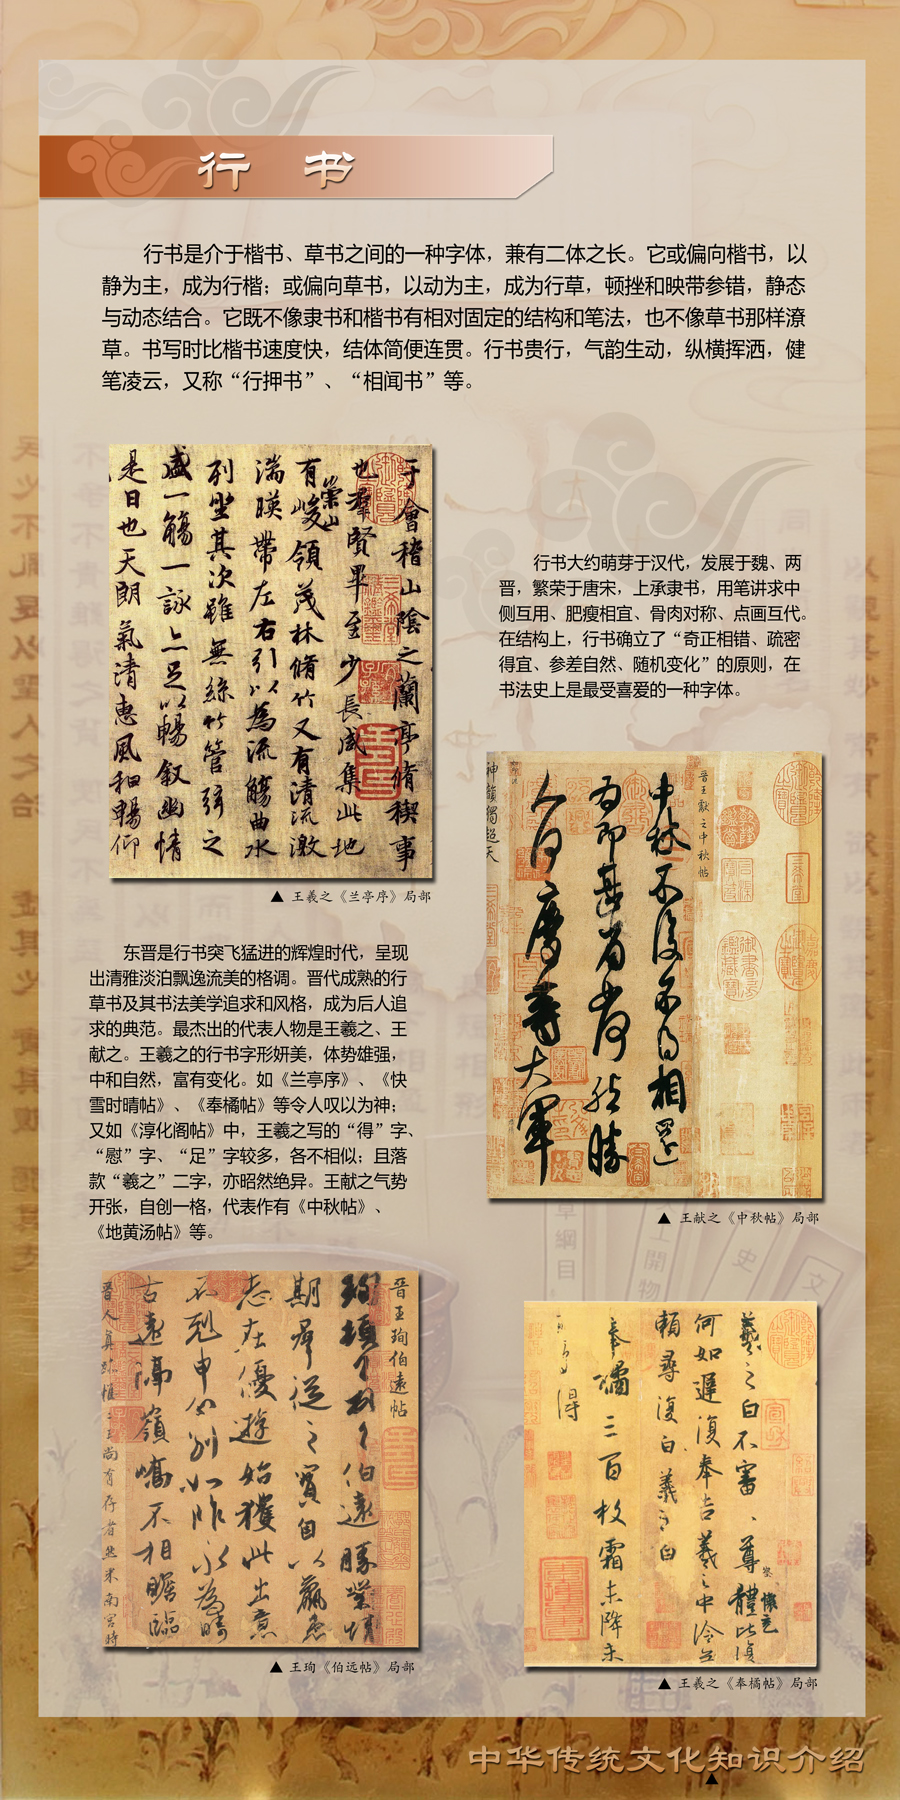 行 书
行书是介于楷书、草书之间的一种字体，兼有二体之长。它或偏向楷书，以
静为主，成为行楷；或偏向草书，以动为主，成为行草，顿挫和映带参错，静态
与动态结合。它既不像隶书和楷书有相对固定的结构和笔法，也不像草书那样潦
草。书写时比楷书速度快，结体简便连贯。行书贵行，气韵生动，纵横挥洒，健
笔凌云，又称“行押书”、“相闻书”等。
于會稽山陰之蘭亭脩稧事
也羣賢畢至少長咸集此地
有崇山峻領茂林脩竹又有清流激
湍暎帶左右引以為流觴曲水
列坐其次雖無絲竹管弦之
盛一觴一詠亦足以暢叙幽情
是日也天朗氣清惠風和暢仰
▲ 王羲之《兰亭序》局部
行书大约萌芽于汉代，发展于魏、两
晋，繁荣于唐宋，上承隶书，用笔讲求中
侧互用、肥瘦相宜、骨肉对称、点画互代。
在结构上，行书确立了“奇正相错、疏密
得宜、参差自然、随机变化”的原则，在
书法史上是最受喜爱的一种字体。
晋王獻之中秋帖
中秋不復不得相還
為即甚省如何然勝
人何慶等大軍
▲ 王献之《中秋帖》局部
东晋是行书突飞猛进的辉煌时代，呈现
出清雅淡泊飘逸流美的格调。晋代成熟的行
草书及其书法美学追求和风格，成为后人追
求的典范。最杰出的代表人物是王羲之、王
献之。王羲之的行书字形妍美，体势雄强，
中和自然，富有变化。如《兰亭序》、《快
雪时晴帖》、《奉橘帖》等令人叹以为神；
又如《淳化阁帖》中，王羲之写的“得”字、
“慰”字、“足”字较多，各不相似；且落
款“羲之”二字，亦昭然绝异。王献之气势
开张，自创一格，代表作有《中秋帖》、
《地黄汤帖》等。
晋王珣伯遠帖
珣頓首頓首伯遠勝業情
期羣從之寶自以羸患
志在優遊始獲此出意
不剋申分別如昨永為疇
古遠隔嶺嶠不相瞻臨
▲ 王珣《伯远帖》局部
羲之白不審尊體比復
何如遲復奉告羲之中冷無
賴尋復白羲之白
奉橘三百枚霜未降未
可多得
▲ 王羲之《奉橘帖》局部
中华传统文化知识介绍